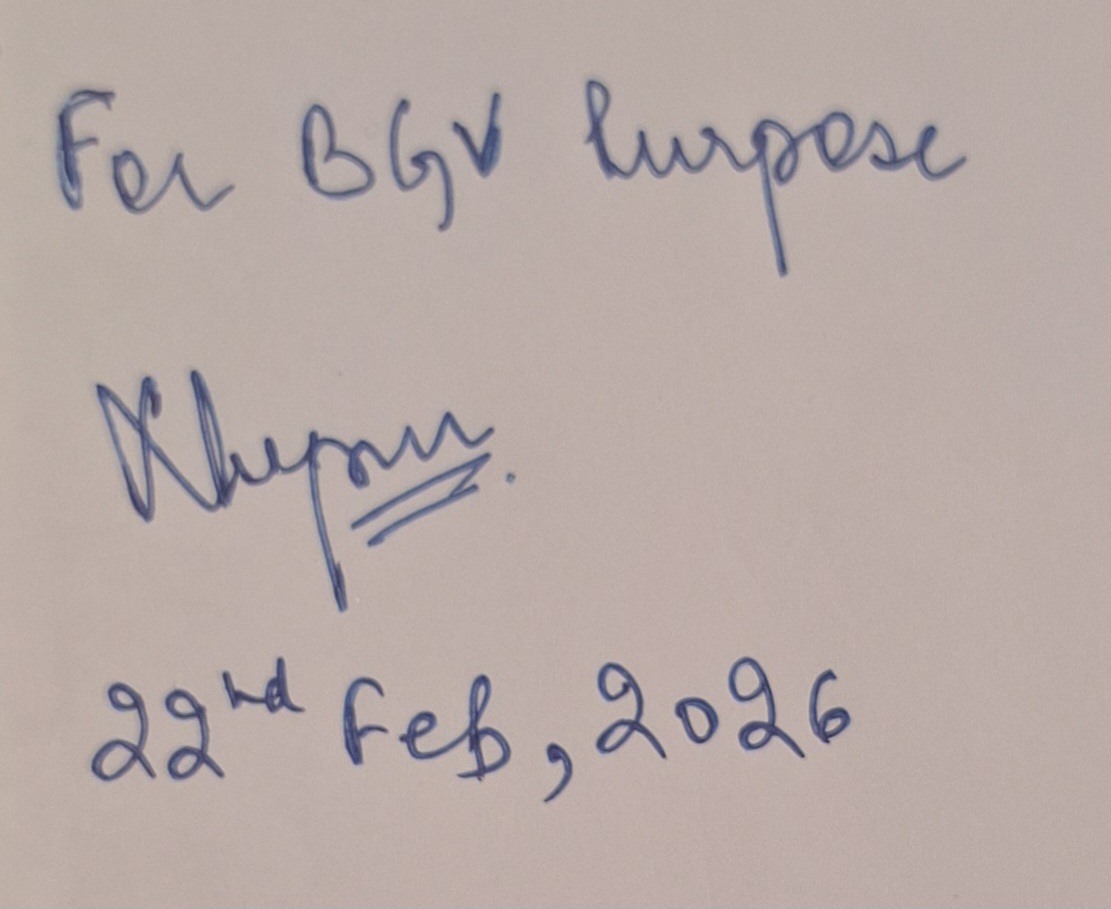 For BGV Purpose
22nd Feb, 2026